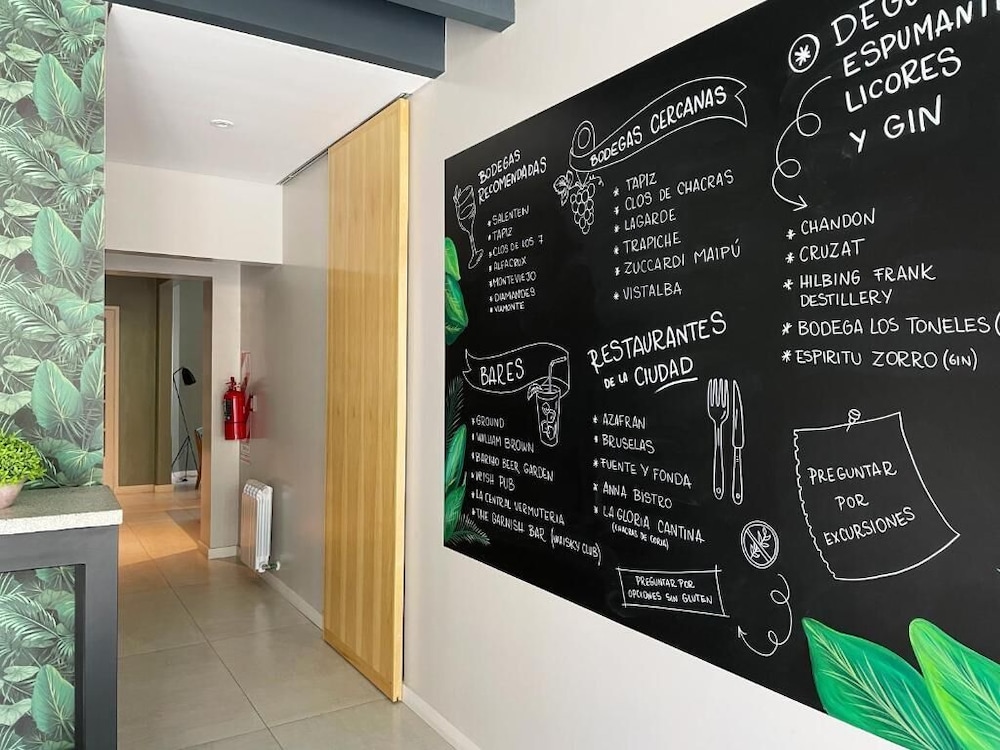 BODEGAS
RECOMENDADAS
* SALENTEIN
* TAPIZ
* CLOS DE LOS 7
* ALFACRUX
* MONTEVIEJO
* DIAMANDES
* VIAMONTE
BODEGAS CERCANAS
* TAPIZ
* CLOS DE CHACRAS
* LAGARDE
* TRAPICHE
* ZUCCARDI MAIPÚ
* VISTALBA
ESPUMANT
LICORES
Y GIN
* CHANDON
* CRUZAT
* HILBING FRANK
DESTILLERY
* BODEGA LOS TONELES (
* ESPIRITU ZORRO (GIN)
BARES
* GROUND
* WILLIAM BROWN
* BARIHO BEER GARDEN
* IRISH PUB
* LA CENTRAL VERMUTERIA
* THE GARNISH BAR (WHISKY CLUB)
RESTAURANTES
DE LA CIUDAD
* AZAFRAN
* BRUSELAS
* FUENTE Y FONDA
* ANNA BISTRO
* LA GLORIA CANTINA
(CHACRAS DE CORIA)
PREGUNTAR POR
OPCIONES SIN GLUTEN
PREGUNTAR
POR
EXCURSIONES